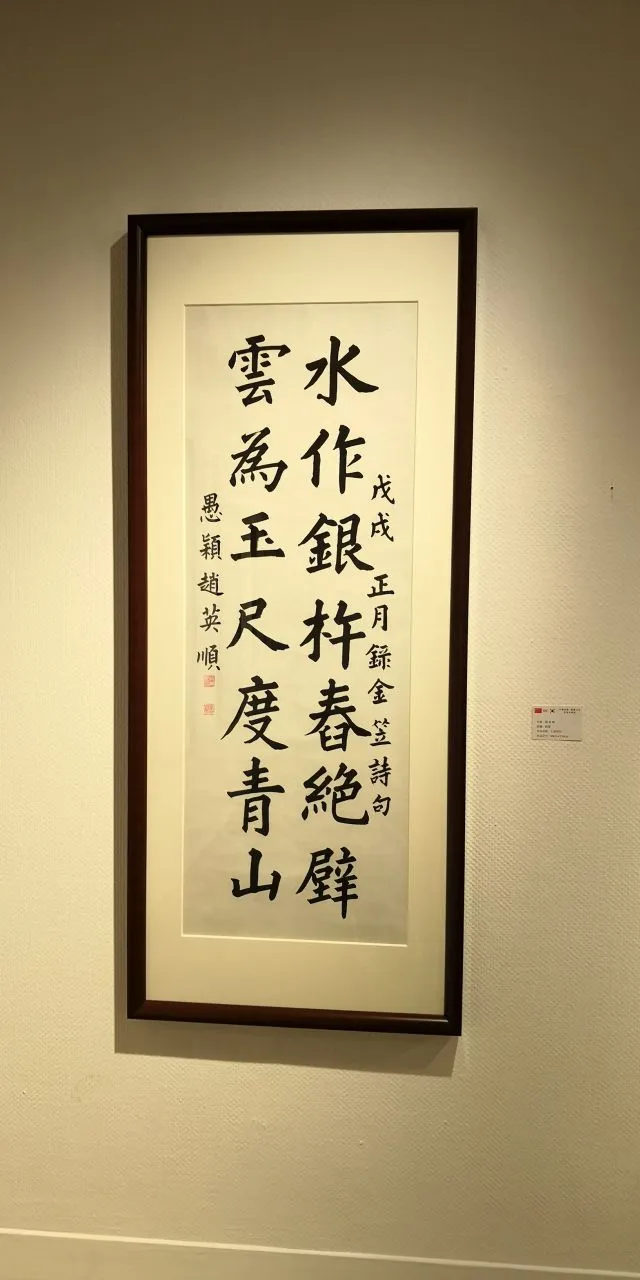 戊戌正月錄金笠詩句
水作銀杵舂絶壁
雲為玉尺度青山
愚穎趙英順